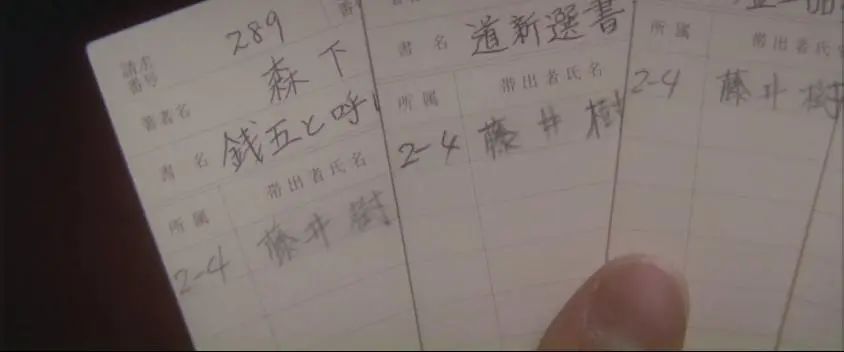 請求番号 289
著者名 森下
書名 銭五と呼
所属 帯出者氏名
2-4 藤井樹
書名 道新選書
所属 帯出者氏名
2-4 藤井樹
所属 帯出者氏
2-4 藤井樹